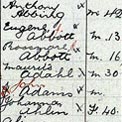 Anthony
Abbing m 42
Eugene J.
Abbott m. 13
Rosemary
Abbott m. 16
Maurits
Adahl m 30
J.
Adams m.
Johanna
Ahlin F. 40.